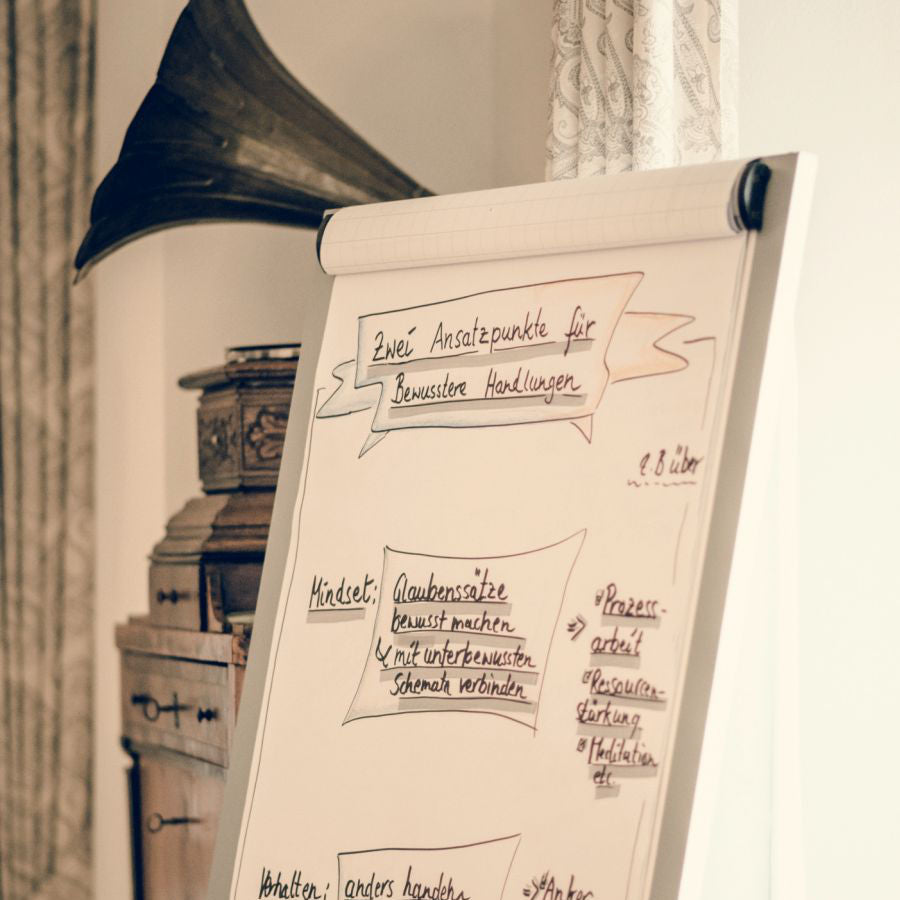 Zwei Ansatzpunkte für
Bewusstere Handlungen
z.B über
Mindset:
Glaubenssätze
bewusst machen
mit unterbewussten
Schemata verbinden
Prozess-
arbeit
Ressourcen-
stärkung
Meditation
etc.
Verhalten:
anders handeln
Anker